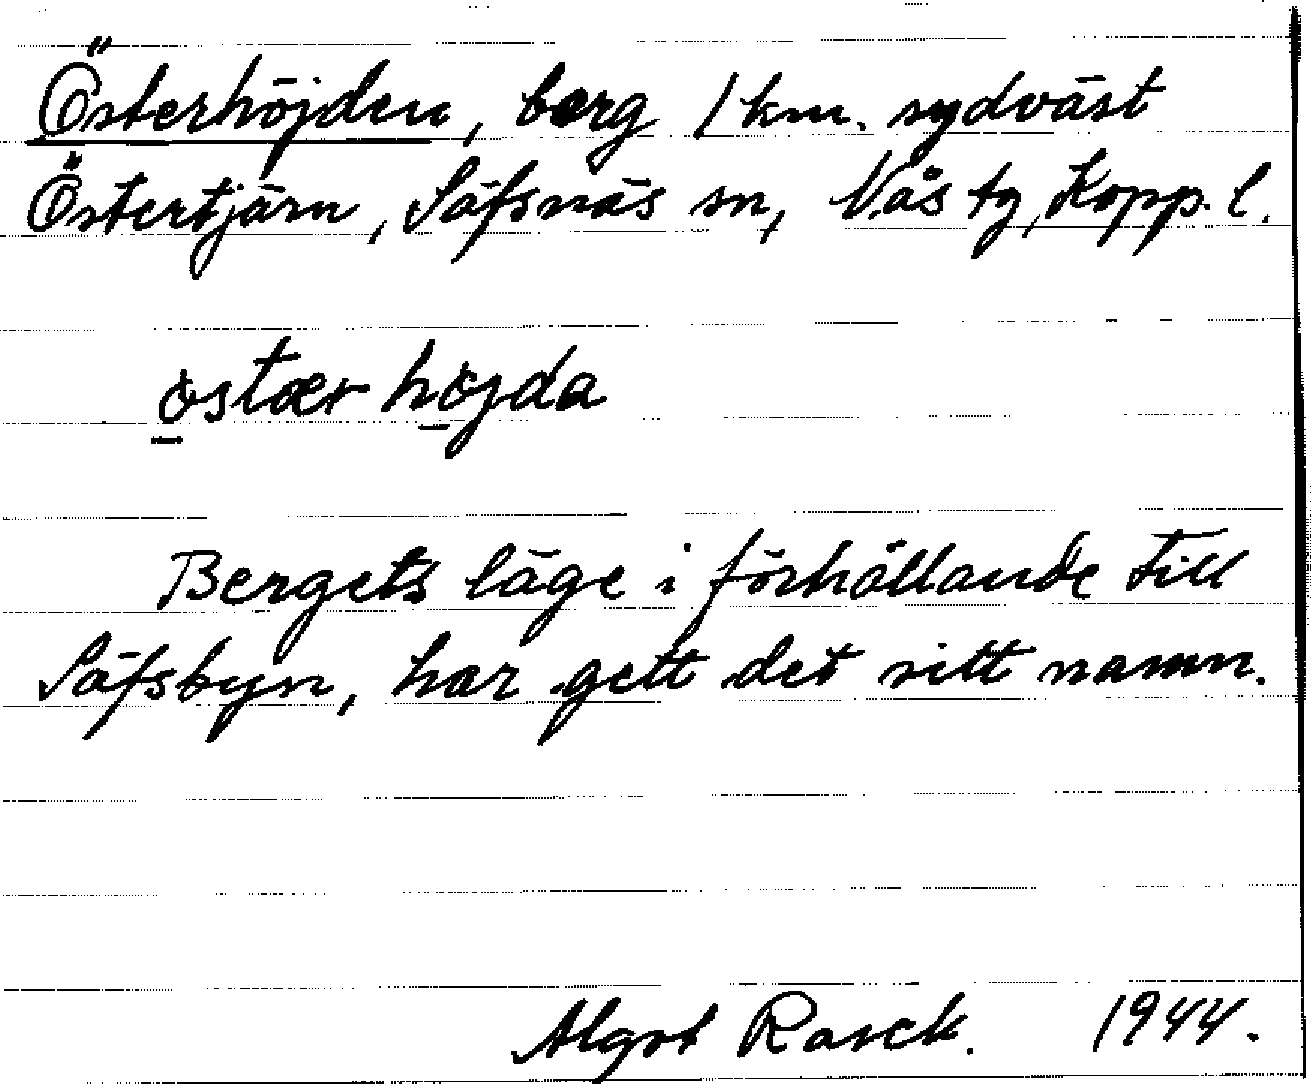 Österhöjden, berg 1 km. sydväst
Östertjärn, Säfsnäs sn, Näs tg, Kopp. l.
östær höjda
Bergets läge i förhållande till
Säfsbyn, har gett det sitt namn.
Algot Rasck. 1944.